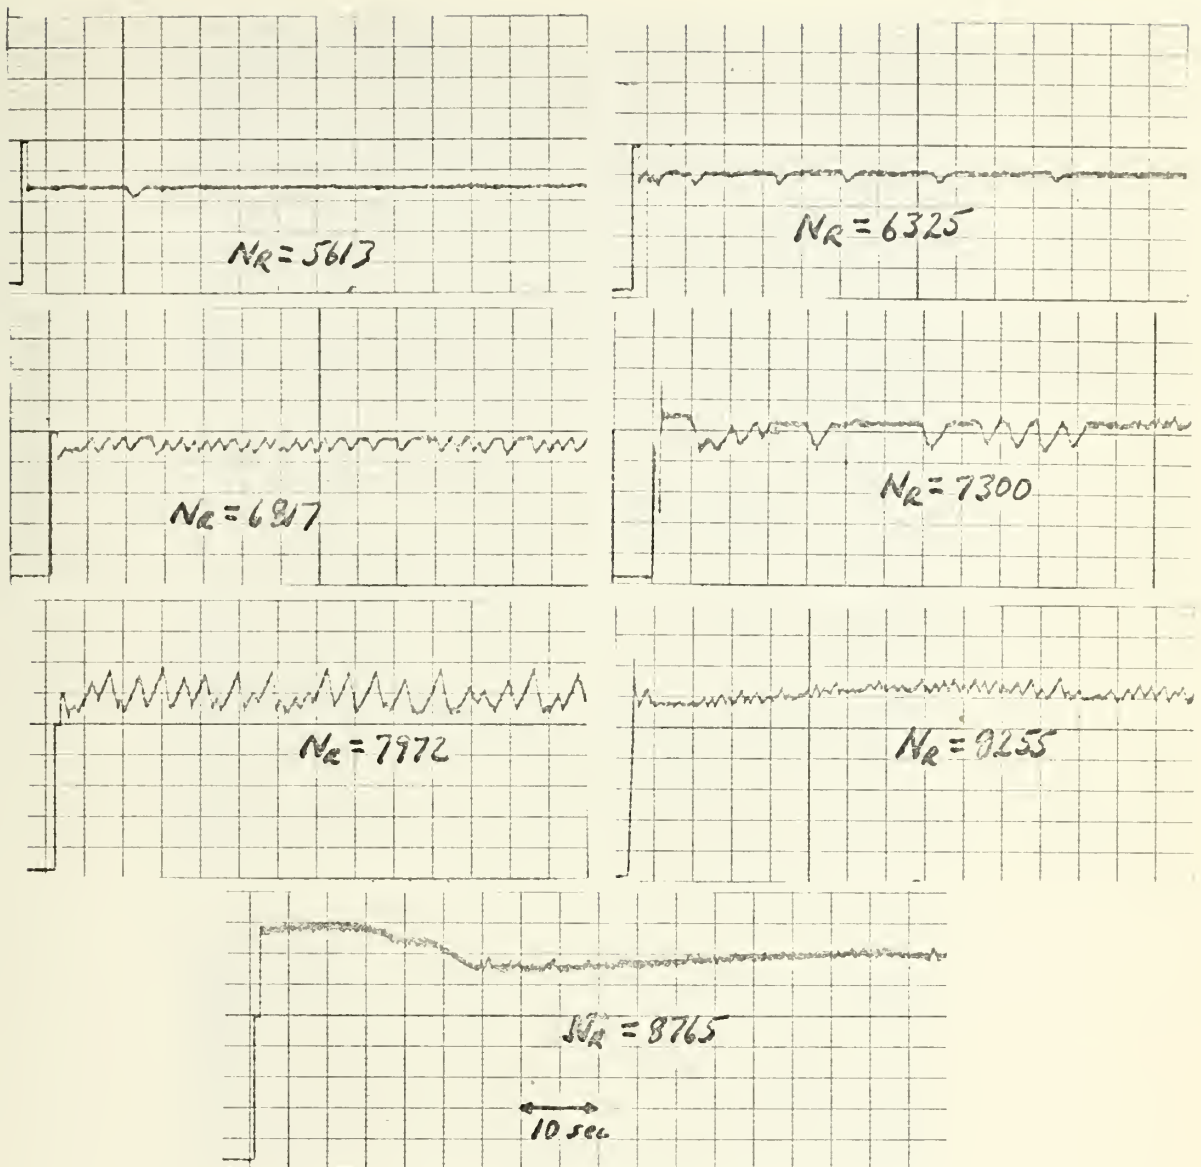 N_R = 5613
N_R = 6325
N_R = 6817
N_R = 7300
N_R = 7972
N_R = 8255
N_R = 8765
10 sec